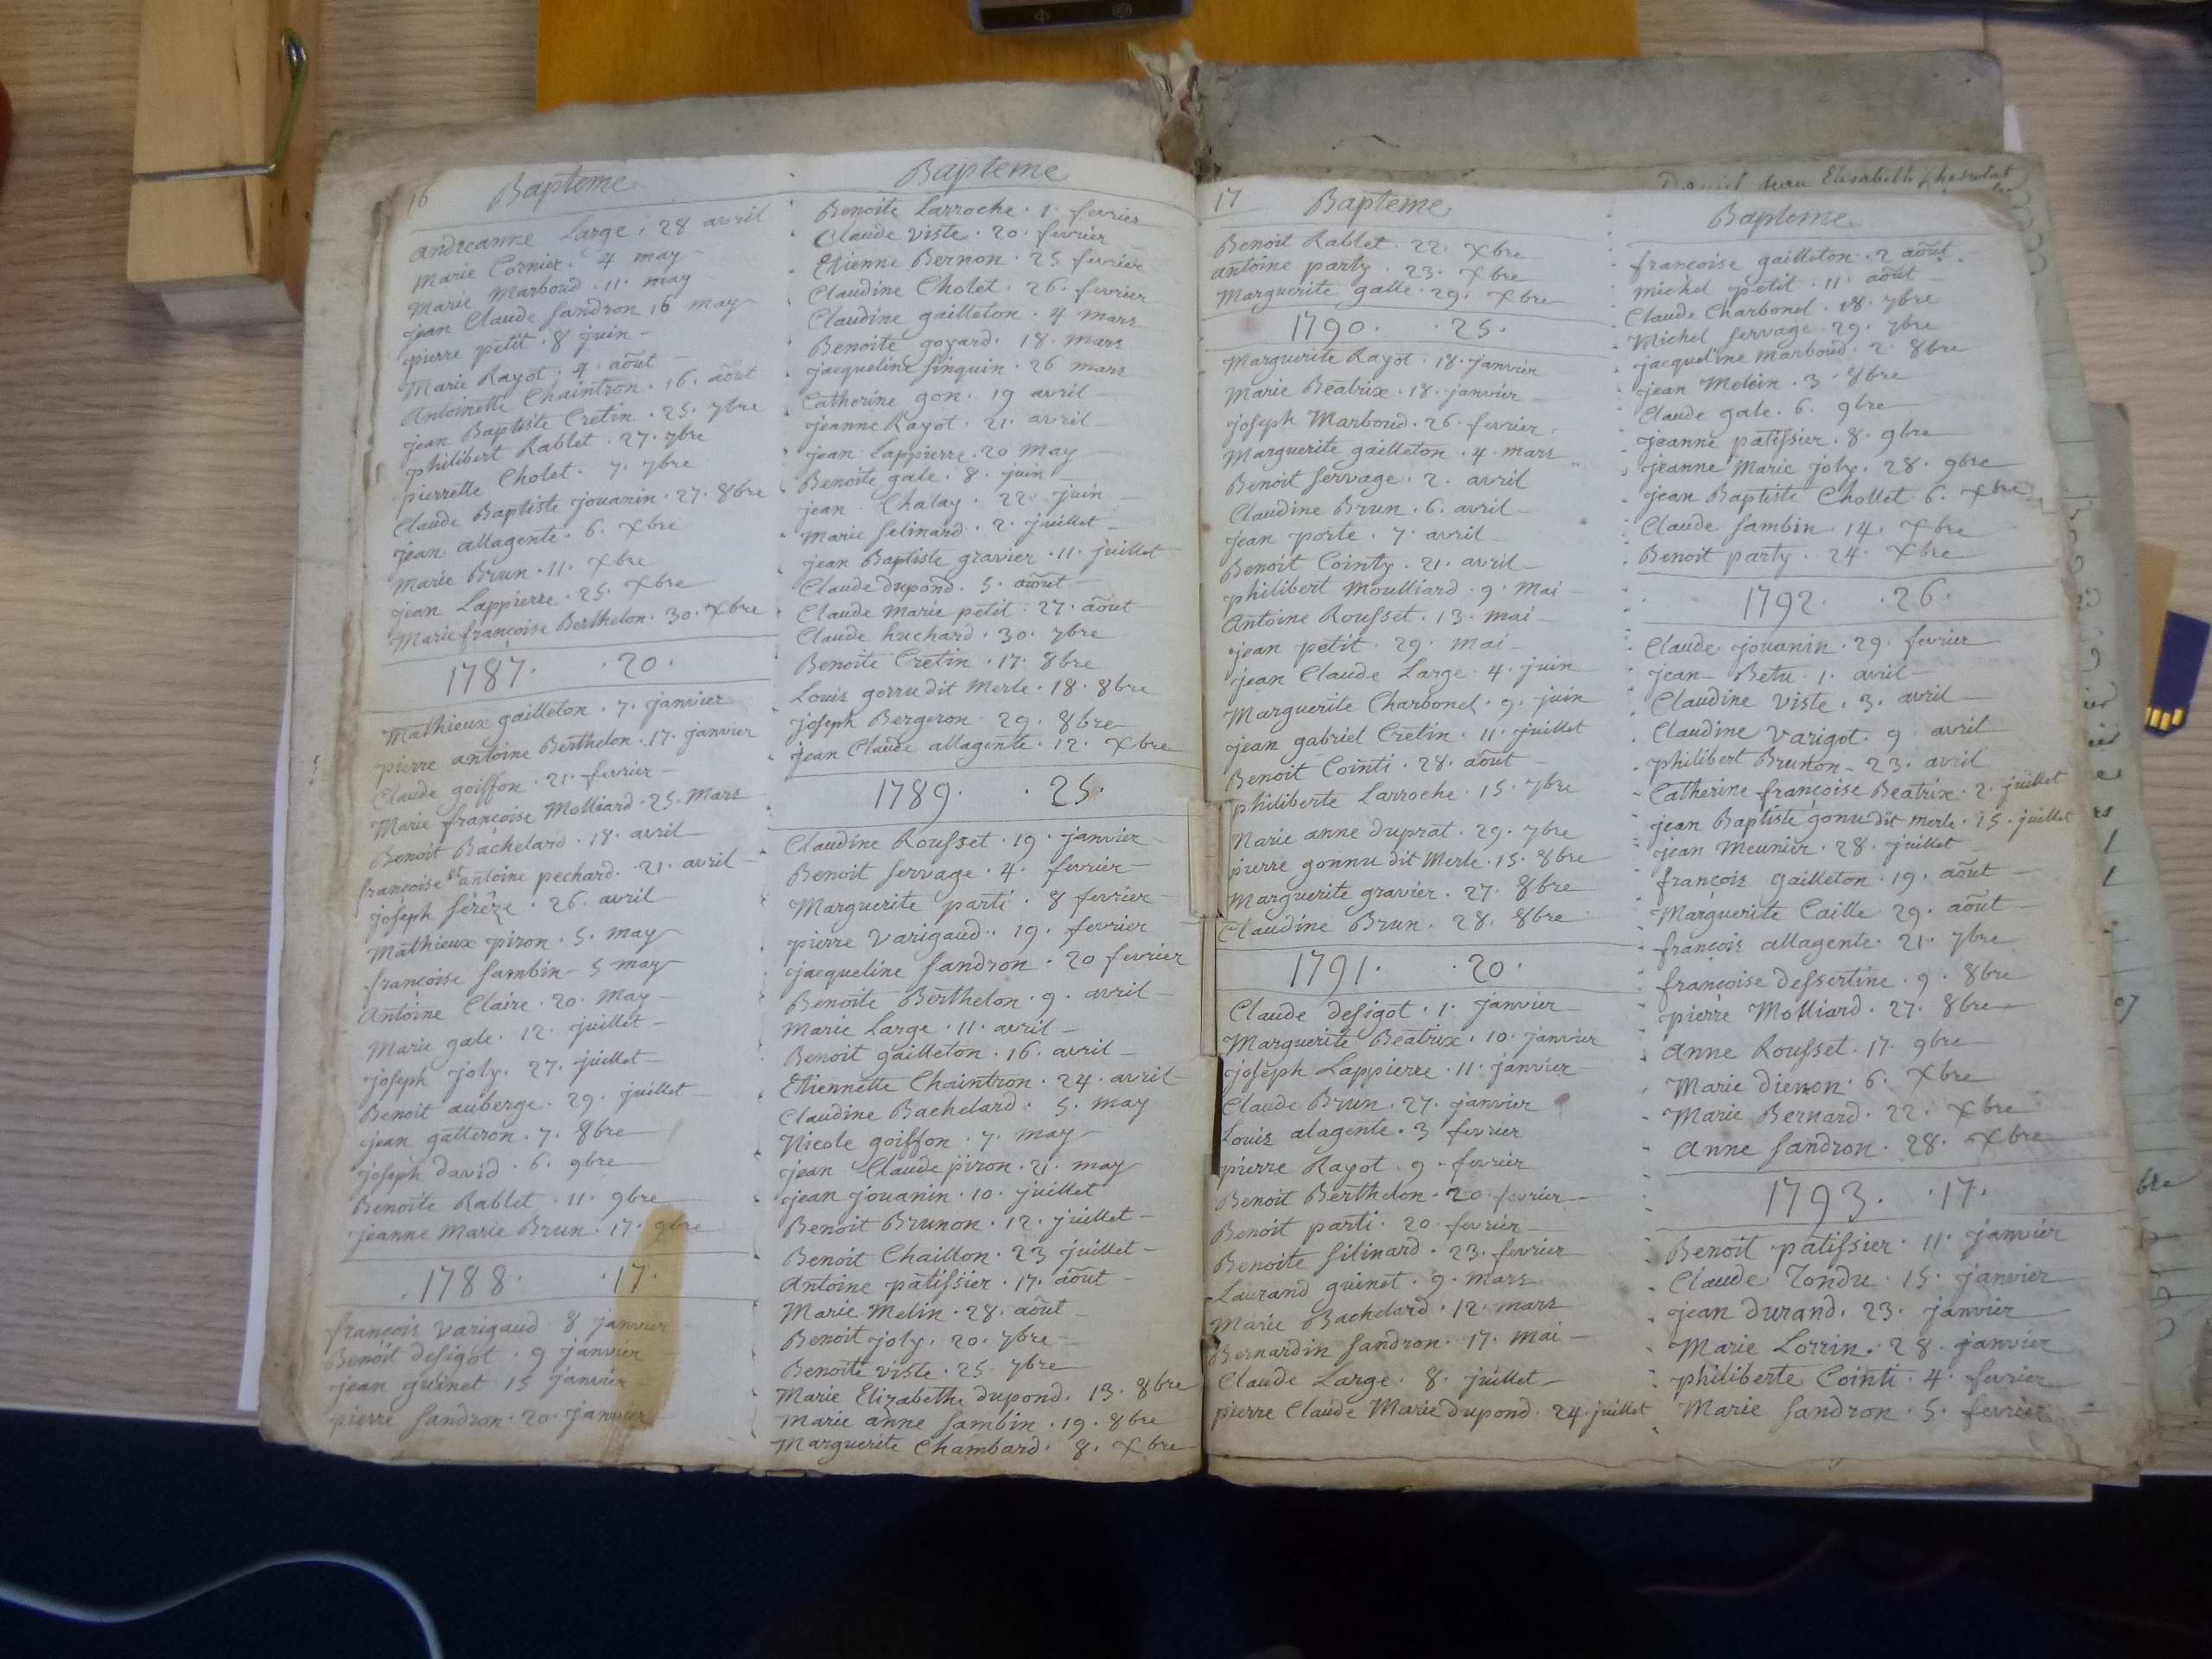 16 Bapteme
andreanne Large. 28 avril
Marie Cornier. 4 may
Marie Marboud. 11. may
jean Claude Sandron 16 may
pierre petit. 8 juin
Marie Rayot. 4. août
Antoinette Chaintron. 16. août
jean Baptiste Cretin. 25. 7bre
philibert Rablet. 27. 7bre
pierrette Cholet. 7. 7bre
Claude Baptiste jouanin. 27. 8bre
jean allagente. 6. Xbre
Marie Brun. 11. Xbre
jean Lappierre. 25. Xbre
Marie françoise Berthelon. 30. Xbre
1787. .20.
Mathieux gailleton. 7. janvier
pierre antoine Berthelon. 17. janvier
Claude goiffon. 21. fevrier
Marie françoise Molliard. 25. Mars
Benoit Bachelard. 18. avril
françoise et antoine pechard. 21. avril
joseph Sereze. 26. avril
Mathieux piron. 5. may
françoise Sambin. 5 may
Antoine Claire. 20. May
Marie gale. 12. juillet
joseph joly. 27. juillet
Benoit auberge. 29. juillet
jean galleron. 7. 8bre
joseph david. 6. 9bre
Benoite Rablet. 11. 9bre
jeanne Marie Brun. 17. 9bre
1788. .17.
françois varigaud. 8 janvier
Benoit desigot. 9 janvier
jean guinet 15 janvier
pierre Sandron. 20. janvier
Bapteme
Benoite Larroche. 1. fevrier
Claude viste. 20. fevrier
Etienne Bernon. 25 fevrier
Claudine Cholet. 26. fevrier
Claudine gailleton. 4 mars
Benoite goyard. 18. mars
jacqueline Sinquin. 26 mars
Catherine gon. 19 avril
jeanne Rayot. 21. avril
jean Lappierre. 20 May
Benoite gale. 8. juin
jean Chalay. 22. juin
Marie Selinard. 2. juillet
jean Baptiste gravier. 11. juillet
Claude dupond. 5. août
Claude Marie petit. 27. août
Claude huchard. 30. 7bre
Benoite Cretin. 17. 8bre
Louis gonnu dit Merle. 18. 8bre
joseph Bergeron. 29. 8bre
jean Claude allagente. 12. Xbre
1789. .25.
Claudine Rousset. 19. janvier
Benoit Servage. 4. fevrier
Marguerite parti. 8 fevrier
pierre Varigaud. 19. fevrier
jacqueline Sandron. 20 fevrier
Benoite Berthelon. 9. avril
Marie Large. 11. avril
Benoit gailleton. 16. avril
Etiennette Chaintron. 24. avril
Claudine Bachelard. 5. may
Nicole goiffon. 7. may
jean Claude piron. 21. may
jean jouanin. 10. juillet
Benoit Brunon. 12. juillet
Benoit Chaillon. 23 juillet
Antoine patissier. 17. août
Marie Melin. 28. août
Benoit joly. 20. 7bre
Benoite viste. 25. 7bre
Marie Elizabethe dupond. 13. 8bre
Marie anne Sambin. 19. 8bre
Marguerite Chambard. 8. Xbre
17 Bapteme
Benoit Rablet. 22. Xbre
antoine party. 23. Xbre
Marguerite galle. 29. Xbre
1790. .25.
Marguerite Rayot. 18. janvier
Marie Beatrix. 18. janvier
joseph Marboud. 26. fevrier
Marguerite gailleton. 4. mars
Benoit Servage. 2. avril
Claudine Brun. 6. avril
jean porte. 7. avril
Benoit Cointy. 21. avril
philibert Moulliard. 9. Mai
Antoine Rousset. 13. mai
jean petit. 29. Mai
jean Claude Large. 4. juin
Marguerite Charbonel. 9. juin
jean gabriel Cretin. 11. juillet
Benoit Cointi. 28. août
philiberte Larroche. 15. 7bre
Marie anne duprat. 29. 7bre
pierre gonnu dit Merle. 15. 8bre
Marguerite gravier. 27. 8bre
Claudine Brun. 28. 8bre
1791. .20.
Claude desigot. 1. janvier
Marguerite Beatrix. 10. janvier
joseph Lappierre. 11. janvier
Claude Brun. 27. janvier
Louis alagente. 3 fevrier
pierre Rayot. 9. fevrier
Benoit Berthelon. 20. fevrier
Benoit parti. 20. fevrier
Benoite Silinard. 23. fevrier
Laurand guinet. 9. mars
Marie Bachelard. 12. mars
Bernardin Sandron. 17. Mai
Claude Large. 8. juillet
pierre Claude Marie dupond. 24. juillet
Bapteme
françoise gailleton. 2 août
michel petit. 11. août
Claude Charbonel. 18. 7bre
Michel Servage. 29. 7bre
jacqueline Marboud. 2. 8bre
jean Melein. 3. 8bre
Claude gale. 6. 9bre
jeanne patissier. 8. 9bre
jeanne Marie joly. 28. 9bre
jean Baptiste Chollet. 6. Xbre
Claude Sambin. 14. Xbre
Benoit party. 24. Xbre
1792. .26.
Claude jouanin. 29. fevrier
jean Betu. 1. avril
Claudine Viste. 3. avril
Claudine Varigot. 9. avril
philibert Brunon. 23. avril
Catherine françoise Beatrix. 2. juillet
jean Baptiste gonu dit merle. 15. juillet
jean Meunier. 28. juillet
françois gailleton. 19. août
Marguerite Caille. 29. août
françois allagente. 21. 7bre
françoise dessertine. 9. 8bre
pierre Molliard. 27. 8bre
Anne Rousset. 17. 9bre
Marie dienon. 6. Xbre
Marie Bernard. 22. Xbre
Anne Sandron. 28. Xbre
1793. .17.
Benoit patissier. 11. janvier
Claude Tondu. 15. janvier
jean durand. 23. janvier
Marie Lorrin. 28. janvier
philiberte Cointi. 4. fevrier
Marie Sandron. 5. fevrier